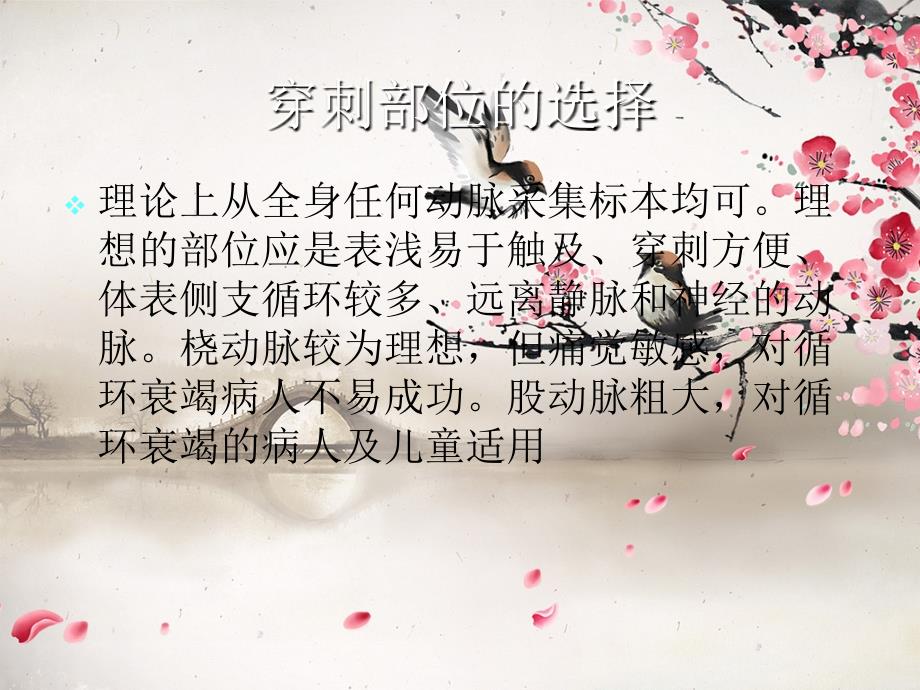 穿刺部位的选择
理论上从全身任何动脉采集标本均可。理
想的部位应是表浅易于触及、穿刺方便、
体表侧支循环较多、远离静脉和神经的动
脉。桡动脉较为理想，但痛觉敏感，对循
环衰竭病人不易成功。股动脉粗大，对循
环衰竭的病人及儿童适用